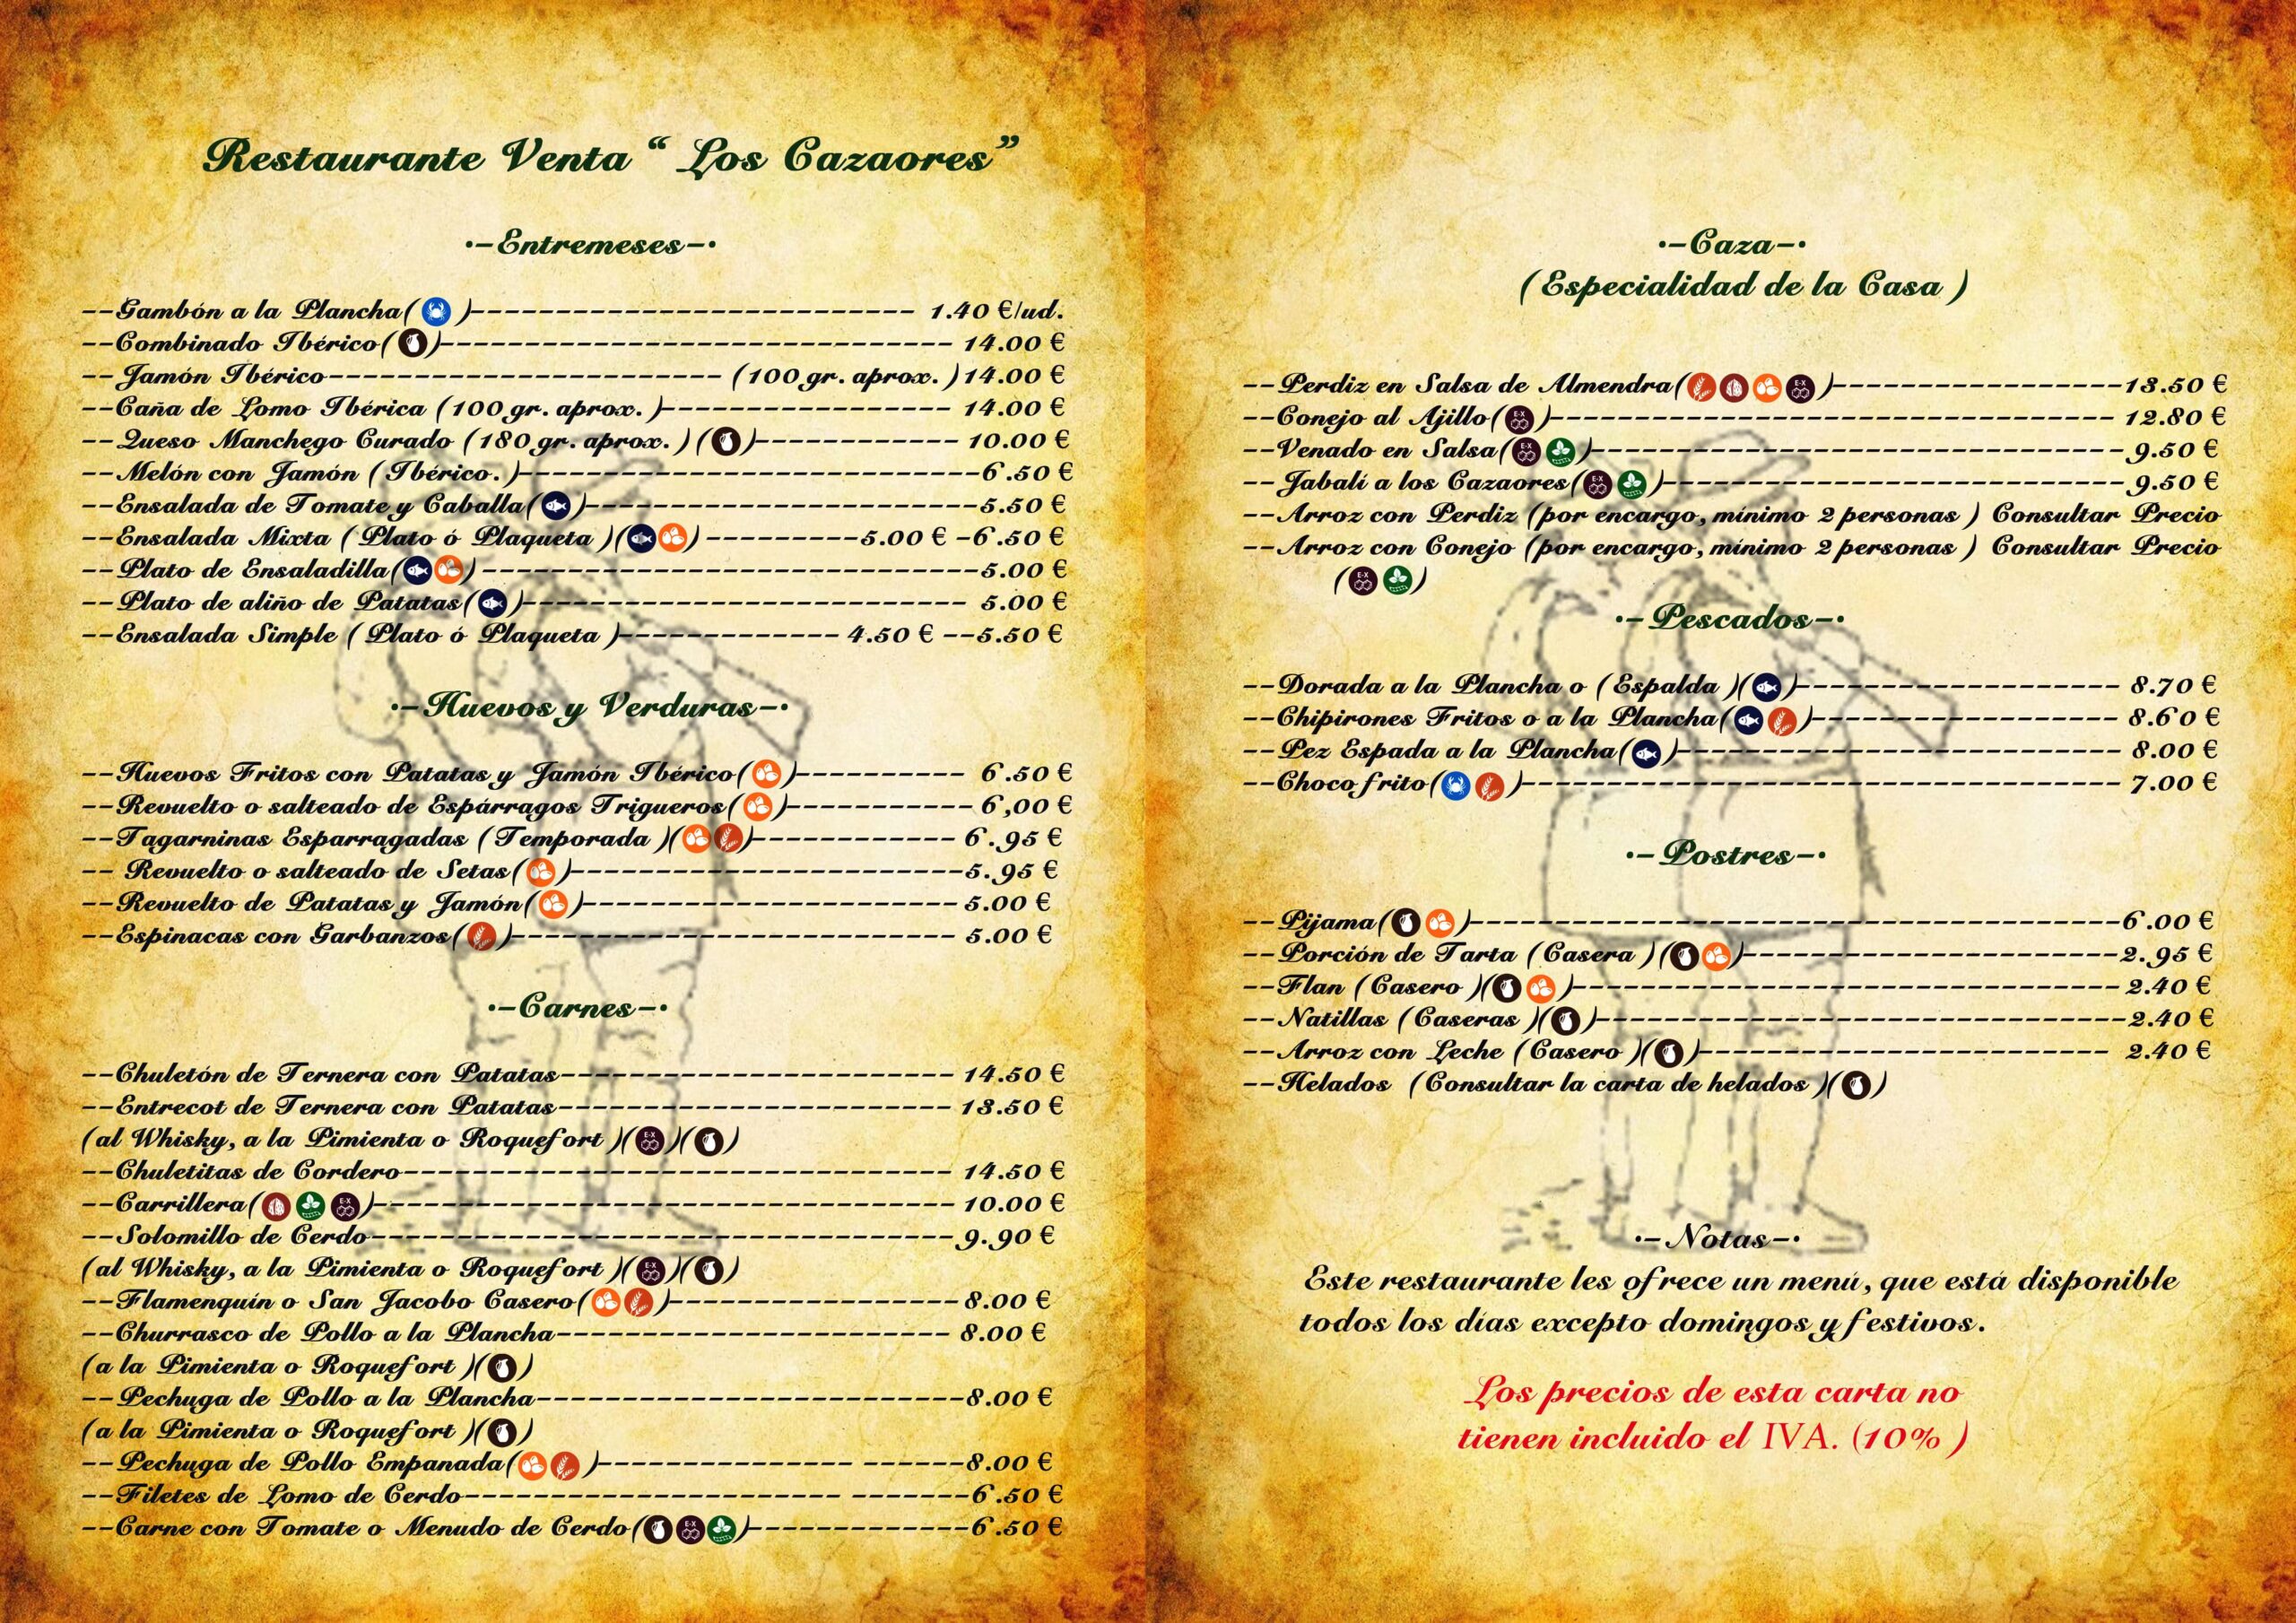 Restaurante Venta “ Los Cazaores”
·-Entremeses-·
--Gambón a la Plancha( )-------------------------- 1.40 €/ud.
--Combinado Ibérico( )------------------------------ 14.00 €
-- Jamón Ibérico----------------------- (100 gr. aprox. ) 14.00 €
--Caña de Lomo Ibérica (100 gr. aprox. )----------------- 14.00 €
--Queso Manchego Curado (180 gr. aprox. ) ( )------------ 10.00 €
--Melón con Jamón ( Ibérico. )---------------------------6.50 €
--Ensalada de Tomate y Caballa( )-----------------------5.50 €
--Ensalada Mixta ( Plato ó Plaqueta )( ) ---------5.00 € -6.50 €
--Plato de Ensaladilla( ) -----------------------------5.00 €
--Plato de aliño de Patatas( )-------------------------- 5.00 €
--Ensalada Simple ( Plato ó Plaqueta )------------- 4.50 € --5.50 €
·-Huevos y Verduras-·
--Huevos Fritos con Patatas y Jamón Ibérico( )---------- 6.50 €
--Revuelto o salteado de Espárragos Trigueros( )-----------6,00 €
--Tagarninas Esparragadas ( Temporada )( )------------ 6.95 €
-- Revuelto o salteado de Setas( )-----------------------5.95 €
--Revuelto de Patatas y Jamón( )----------------------5.00 €
--Espinacas con Garbanzos( )-------------------------- 5.00 €
·-Carnes-·
--Chuletón de Ternera con Patatas----------------------- 14.50 €
--Entrecot de Ternera con Patatas----------------------- 13.50 €
(al Whisky, a la Pimienta o Roquefort )( )( )
--Chuletitas de Cordero-------------------------------- 14.50 €
--Carrillera( )---------------------------------- 10.00 €
--Solomillo de Cerdo----------------------------------9.90 €
(al Whisky, a la Pimienta o Roquefort )( )( )
--Flamenquín o San Jacobo Casero( )-----------------8.00 €
--Churrasco de Pollo a la Plancha----------------------- 8.00 €
(a la Pimienta o Roquefort )( )
--Pechuga de Pollo a la Plancha-------------------------8.00 €
(a la Pimienta o Roquefort )( )
--Pechuga de Pollo Empanada( )--------------- ------8.00 €
--Filetes de Lomo de Cerdo---------------------- -------6.50 €
--Carne con Tomate o Menudo de Cerdo( )-------------6.50 €
·-Caza-·
( Especialidad de la Casa )
--Perdiz en Salsa de Almendra( )-----------------13.50 €
--Conejo al Ajillo( )--------------------------------- 12.80 €
--Venado en Salsa( )-------------------------------9.50 €
--Jabalí a los Cazaores( )---------------------------9.50 €
--Arroz con Perdiz (por encargo, mínimo 2 personas ) Consultar Precio
--Arroz con Conejo (por encargo, mínimo 2 personas ) Consultar Precio
( )
·-Pescados-·
--Dorada a la Plancha o ( Espalda )( )------------------- 8.70 €
--Chipirones Fritos o a la Plancha( )------------------ 8.60 €
--Pez Espada a la Plancha( )-------------------------- 8.00 €
--Choco frito( )----------------------------------- 7.00 €
·-Postres-·
--Pijama( )--------------------------------------6.00 €
--Porción de Tarta ( Casera )( )----------------------2.95 €
--Flan ( Casero )( )--------------------------------2.40 €
--Natillas ( Caseras )( )-------------------------------2.40 €
--Arroz con Leche ( Casero )( )------------------------ 2.40 €
--Helados (Consultar la carta de helados )( )
·-Notas-·
Este restaurante les ofrece un menú, que está disponible
todos los días excepto domingos y festivos.
Los precios de esta carta no
tienen incluido el IVA. (10% )